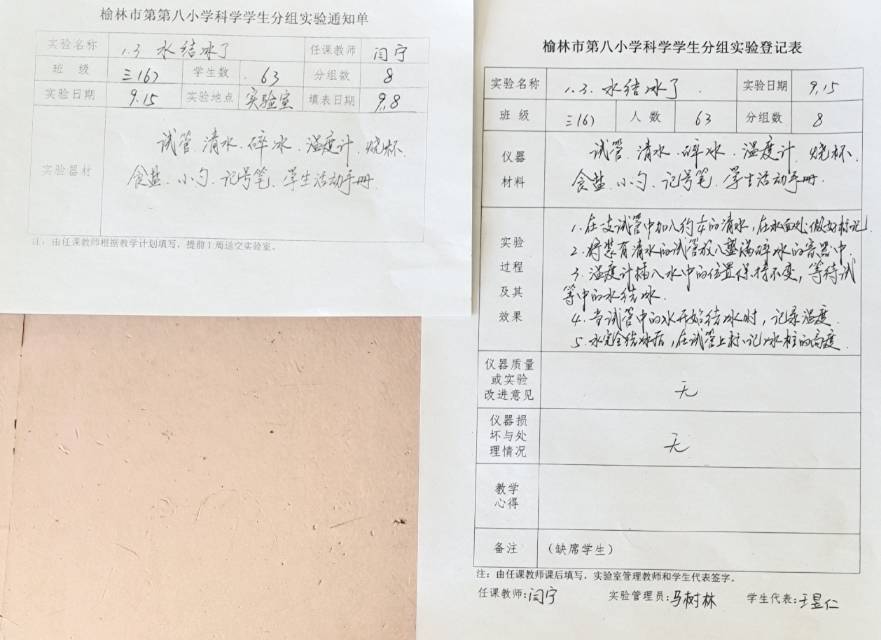 榆林市第第八小学科学学生分组实验通知单
实验名称 1.3 水结冰了 任课教师 闫宁
班 级 三(6) 学生数 63 分组数 8
实验日期 9.15 实验地点 实验室 填表日期 9.8
实验器材
试管、清水、碎冰、温度计、烧杯、
食盐、小勺、记号笔、学生活动手册.
注：由任课教师根据教学计划填写，提前1周送交实验室。
榆林市第八小学科学学生分组实验登记表
实验名称 1.3.水结冰了. 实验日期 9.15
班 级 三(6) 人 数 63 分组数 8
仪器材料
试管、清水、碎冰、温度计、烧杯、
食盐、小勺、记号笔、学生活动手册.
实验过程及其效果
1.在支试管中加入约 的清水，在水面处做好标记
2.将装有清水的试管放入盛满碎冰的容器中.
3.温度计插入水中的位置保持不变，等待试
管中的水结冰.
4.当试管中的水开始结冰时，记录温度.
5.水完全结冰后，在试管上标记冰柱的高度
仪器质量或实验改进意见 无
仪器损坏与处理情况 无
教学心得
备注 (缺席学生)
注：由任课教师课后填写，实验室管理教师和学生代表签字。
任课教师:闫宁 实验管理员:马树林 学生代表:王昱仁